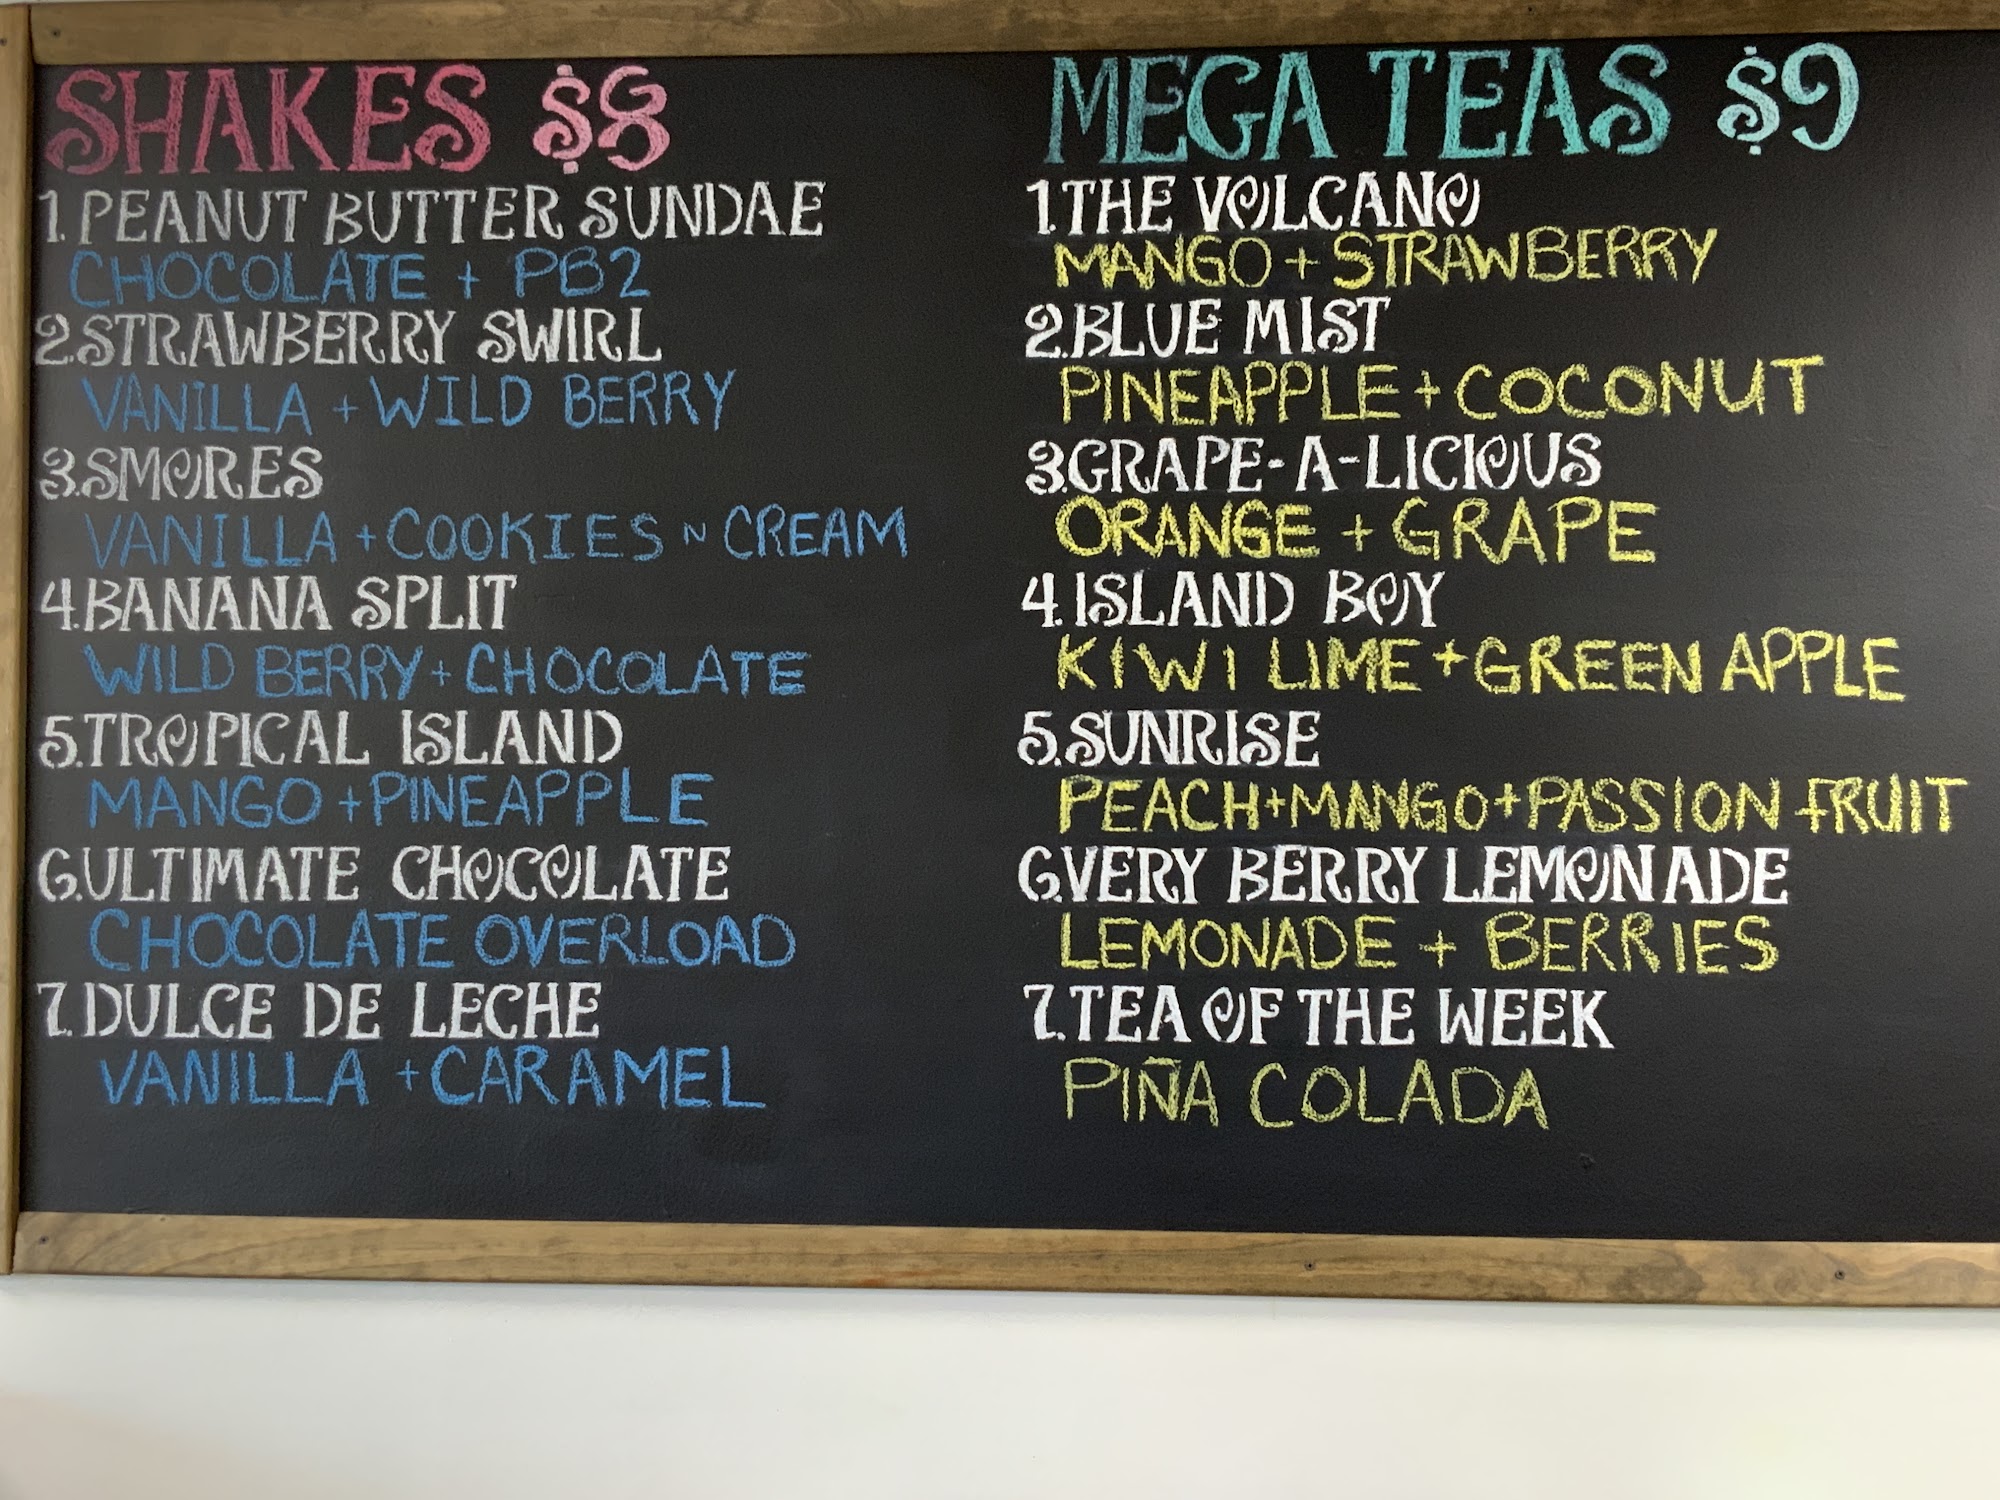 SHAKES $8
1. PEANUT BUTTER SUNDAE
CHOCOLATE + PB2
2. STRAWBERRY SWIRL
VANILLA + WILD BERRY
3. SMORES
VANILLA + COOKIES N CREAM
4. BANANA SPLIT
WILD BERRY + CHOCOLATE
5. TROPICAL ISLAND
MANGO + PINEAPPLE
6. ULTIMATE CHOCOLATE
CHOCOLATE OVERLOAD
7. DULCE DE LECHE
VANILLA + CARAMEL
MEGA TEAS $9
1. THE VOLCANO
MANGO + STRAWBERRY
2. BLUE MIST
PINEAPPLE + COCONUT
3. GRAPE-A-LICIOUS
ORANGE + GRAPE
4. ISLAND BOY
KIWI LIME + GREEN APPLE
5. SUNRISE
PEACH + MANGO + PASSION FRUIT
6. VERY BERRY LEMONADE
LEMONADE + BERRIES
7. TEA OF THE WEEK
PIÑA COLADA